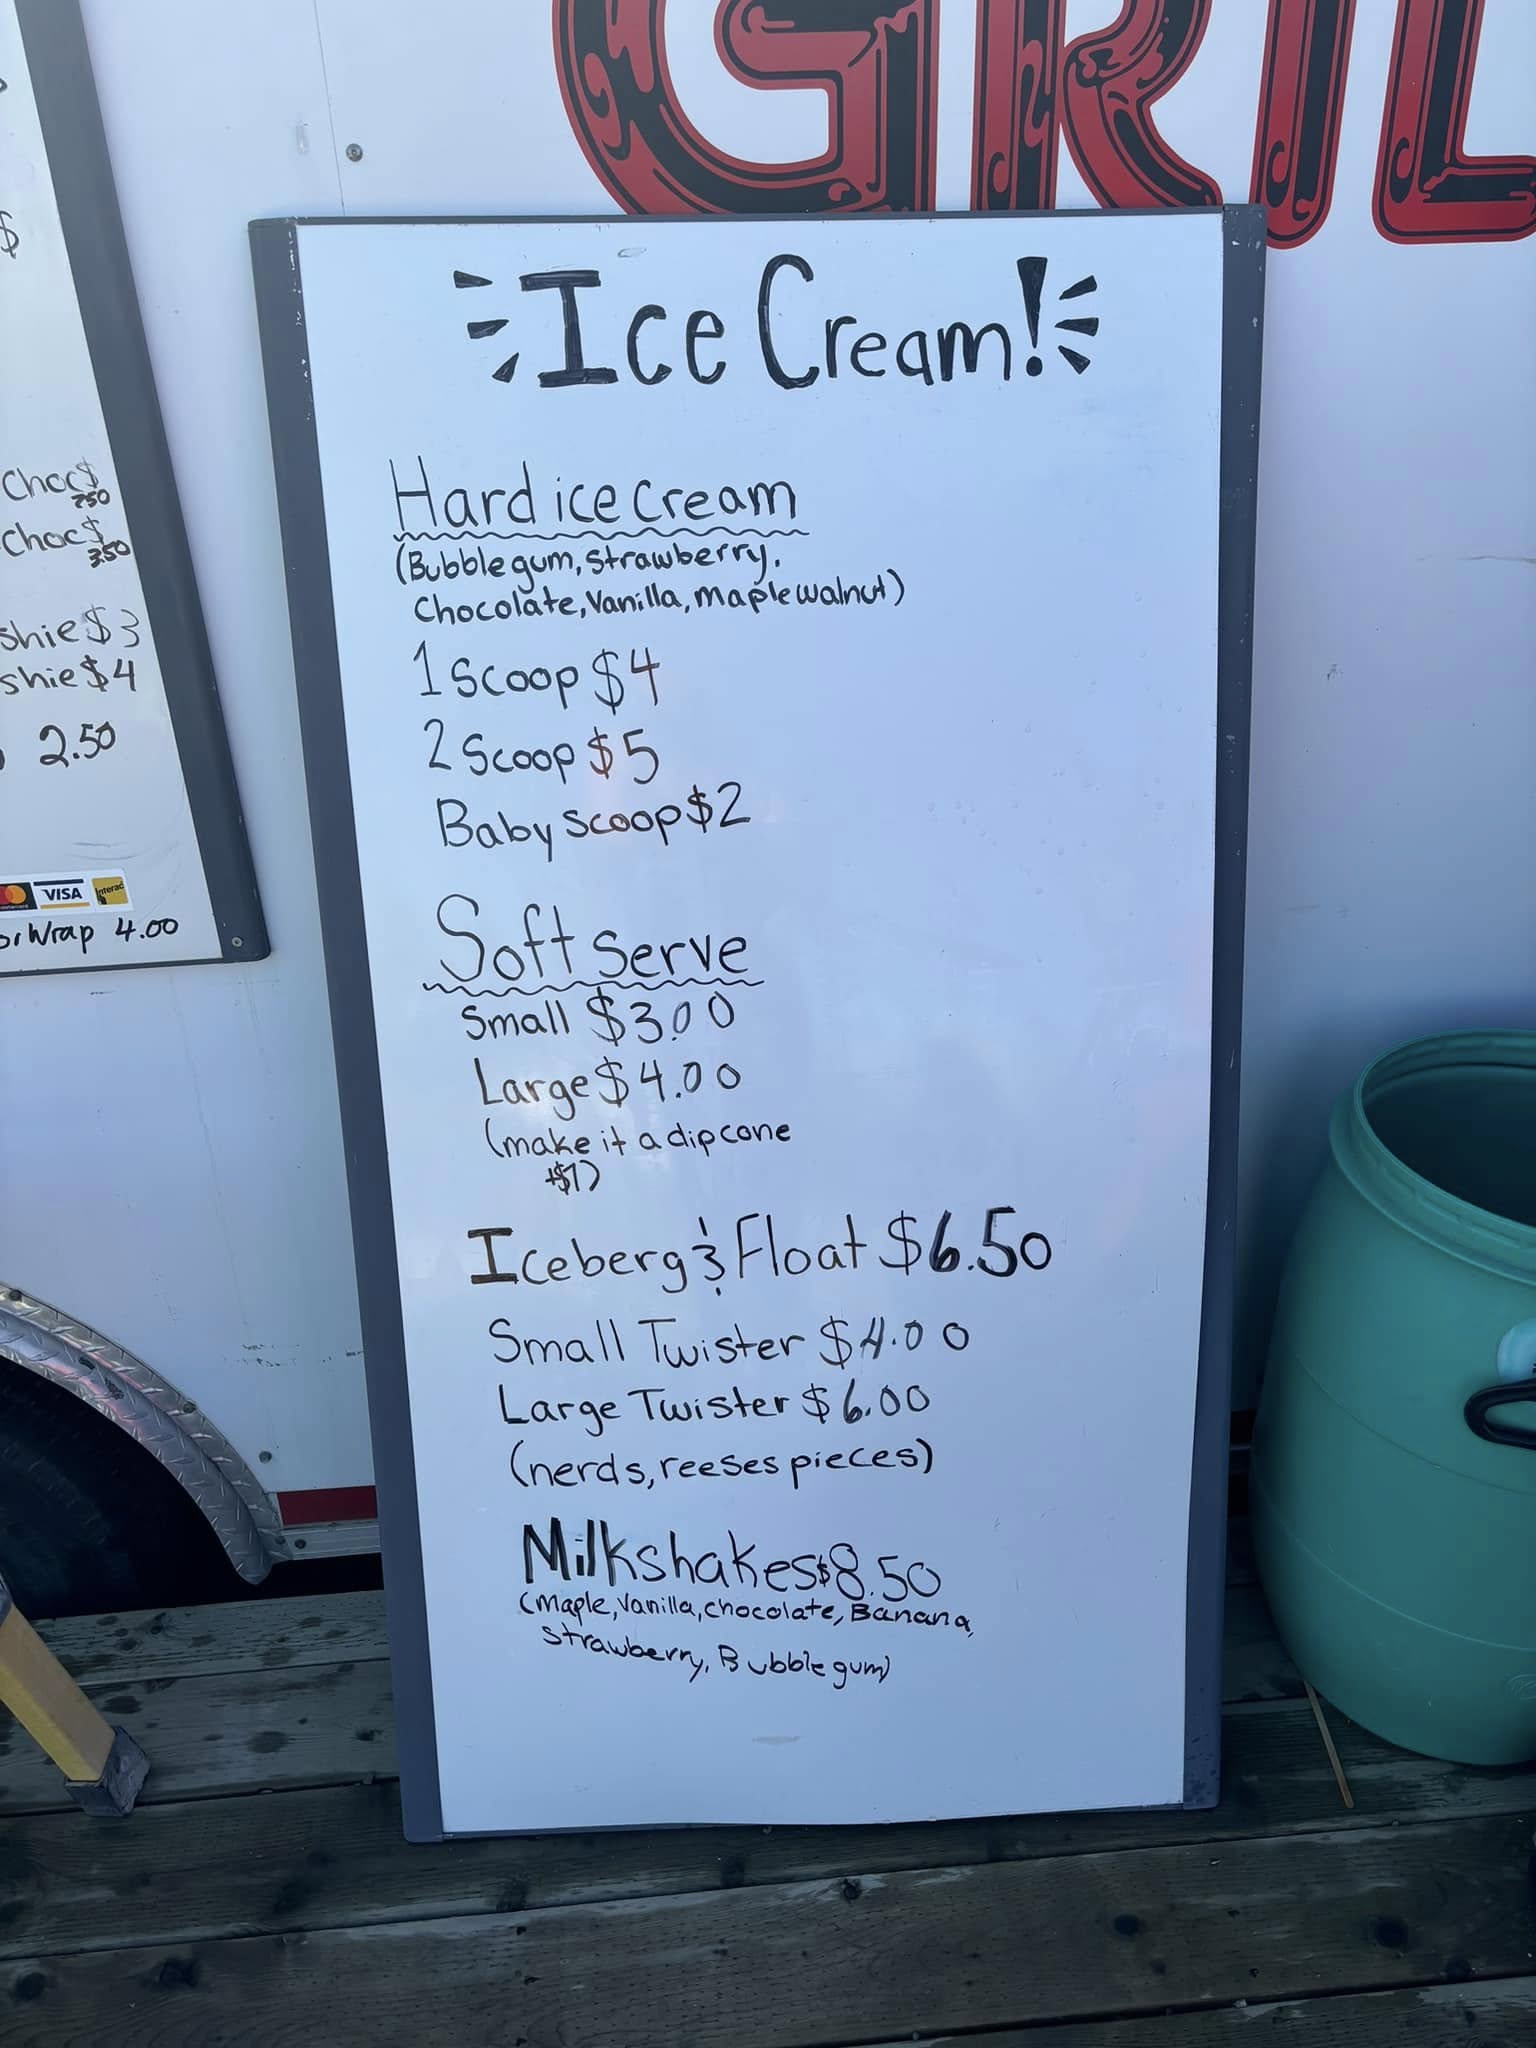 GRIL
$
Choc $
2.50
Choc $
3.50
shie $3
shie $4
2.50
VISA
Interac
or Wrap 4.00
Ice Cream!
Hard ice cream
(Bubblegum, Strawberry,
Chocolate, Vanilla, Maple walnut)
1 Scoop $4
2 Scoop $5
Baby scoop $2
Soft serve
Small $3.00
Large $4.00
(make it a dip cone
+$1)
Iceberg & Float $6.50
Small Twister $4.00
Large Twister $6.00
(nerds, reeses pieces)
Milkshakes $8.50
(Maple, Vanilla, chocolate, Banana,
strawberry, Bubblegum)